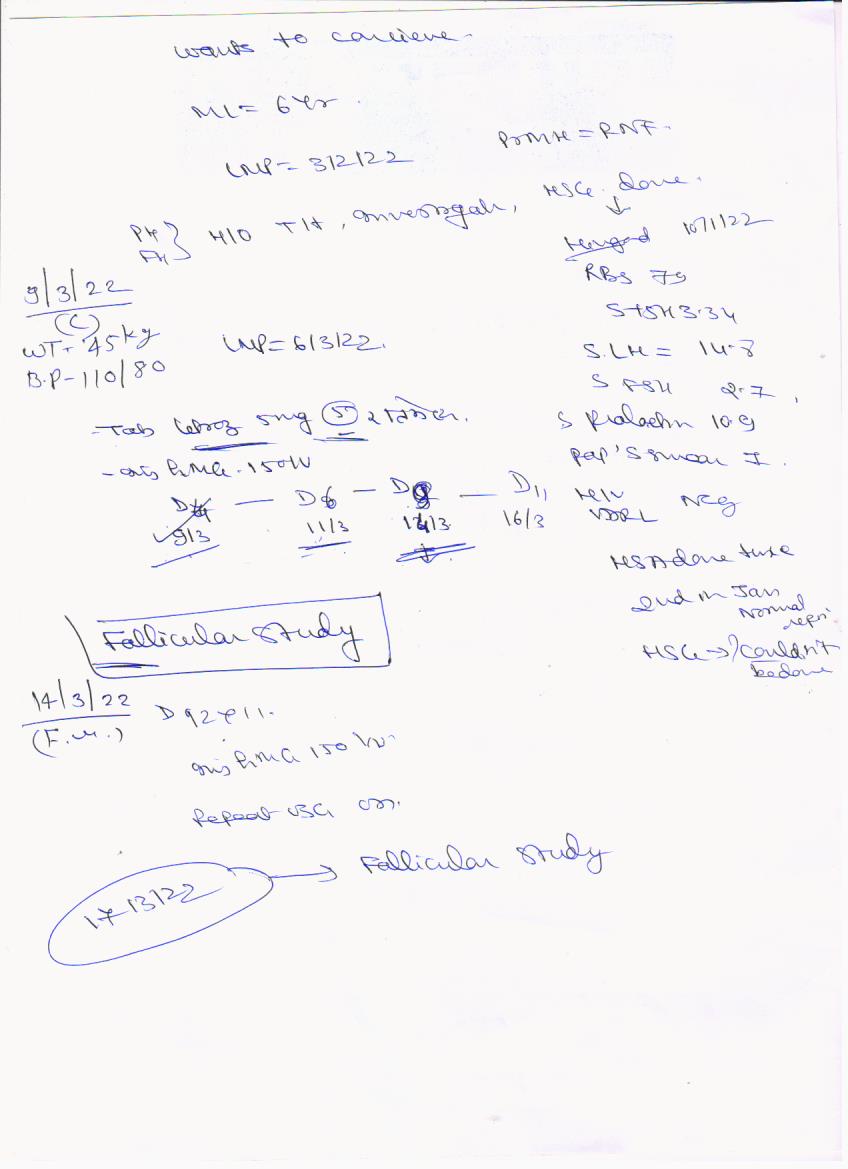 wants to concieve.
ML = 6 Yr.
PrMH = RNF.
LMP = 3/2/22
PH } H/O T/t, investigatn, HSG. done.
FH
10/1/22
RBS 79
S TSH 3.34
S. LH = 14.8
S FSH 2.7,
S Prolactin 10.9
Pap's Smear I.
HIV Neg
VDRL
HSA done twice
2nd in Jan
Normal
HSG → ? Couldn't
be done
9/3/22
(C)
WT - 45 kg
B.P - 110/80
LMP = 6/3/22.
- Tab 5mg (5)
- inj HMG - 150 IU
D4 — D6 — D9 — D11
9/3 11/3 14/3 16/3
Follicular Study
14/3/22
(F.M.)
D 9
inj HMG 150 IU
Repeat USG on.
17/3/22 → Follicular Study